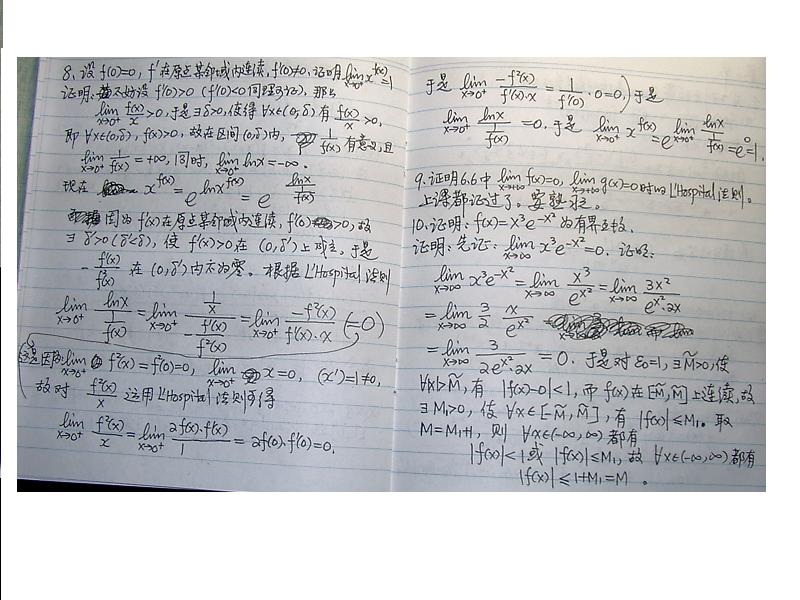 8、设 f(0)=0, f' 在原点某邻域内连续, f'(0)≠0、证明 lim_{x→0⁺} x^{f(x)}=1
证明: 不妨设 f'(0)>0 (f'(0)<0 同理可证), 那么
lim_{x→0⁺} f(x)/x >0, 于是∃δ>0, 使得 ∀x∈(0,δ) 有 f(x)/x >0,
即 ∀x∈(0,δ), f(x)>0, 故在区间(0,δ)内, 1/f(x) 有意义, 且
lim_{x→0⁺} 1/f(x) = +∞, 同时, lim_{x→0⁺} lnx = -∞.
现在 x^{f(x)} = e^{lnx^{f(x)}} = e^{lnx/(1/f(x))}
因为 f(x) 在原点某邻域内连续, f'(0)>0, 故
∃δ'>0 (δ'<δ), 使 f'(x)>0 在 (0,δ') 上成立, 于是
-f'(x)/f²(x) 在 (0,δ') 内不为零。根据 L'Hospital 法则
lim_{x→0⁺} lnx/(1/f(x)) = lim_{x→0⁺} (1/x)/(-f'(x)/f²(x)) = lim_{x→0⁺} -f²(x)/(f'(x)·x) (=0)
这是因为 lim_{x→0⁺} f²(x)=f²(0)=0, lim_{x→0⁺} x=0, (x')=1≠0,
故对 f²(x)/x 运用 L'Hospital 法则可得
lim_{x→0⁺} f²(x)/x = lim_{x→0⁺} 2f(x)·f'(x)/1 = 2f(0)·f'(0)=0.
于是 lim_{x→0⁺} -f²(x)/(f'(x)·x) = 1/f'(0) ·0=0.) 于是
lim_{x→0⁺} lnx/(1/f(x)) =0. 于是 lim_{x→0⁺} x^{f(x)} = e^{lim_{x→0⁺} lnx/(1/f(x))} = e⁰=1.
9.证明6.6中 lim_{x→+∞} f(x)=0, lim_{x→+∞} g(x)=0时的L'Hospital法则。
上课都证过了。
10.证明: f(x)=x³e^{-x²} 为有界函数.
证明: 先证: lim_{x→∞} x³e^{-x²}=0. 证明:
lim_{x→∞} x³e^{-x²} = lim_{x→∞} x³/e^{x²} = lim_{x→∞} 3x²/(e^{x²}·2x)
= lim_{x→∞} 3/2 x/e^{x²}
= lim_{x→∞} 3/(2e^{x²}·2x) = 0. 于是对 ε₀=1, ∃M̃>0, 使
∀|x|>M̃, 有 |f(x)-0|<1, 而 f(x) 在 [-M̃,M̃] 上连续, 故
∃M₁>0, 使 ∀x∈[-M̃,M̃], 有 |f(x)|≤M₁. 取
M=M₁+1, 则 ∀x∈(-∞,∞) 都有
|f(x)|<1 或 |f(x)|≤M₁, 故 ∀x∈(-∞,∞) 都有
|f(x)|≤1+M₁=M 。